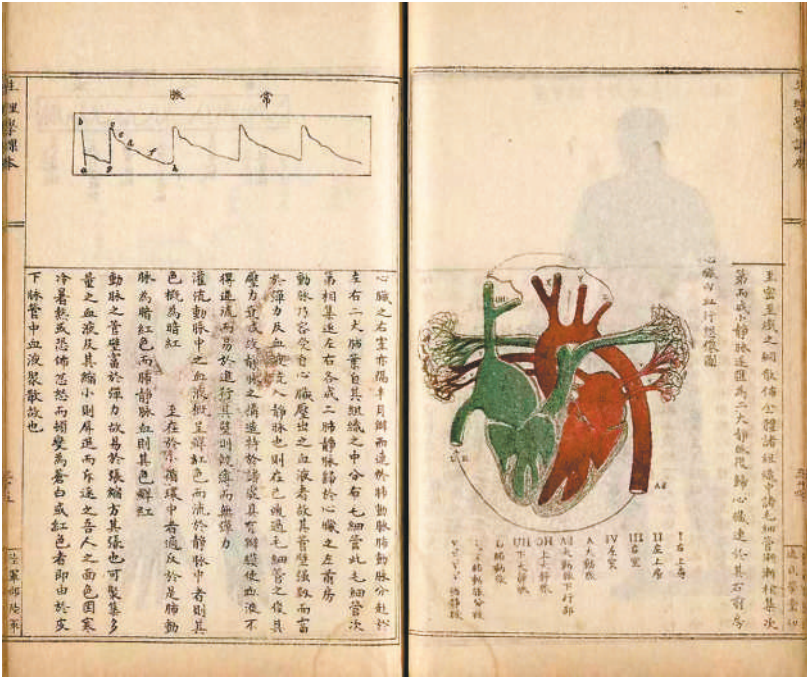 至密至纖之網散佈全體諸組織中諸毛細管漸漸相集次
第而成小靜脈遂匯為二大靜脈復歸心臟達於其右前房
心臟血行想像圖
I 右上房
II 左上房
III 右室
IV 左室
A 大動脈
Ad 大動脈下行部
OH 上大靜脈
UH 下大靜脈
L 肺動脈
肺動脈分枝
v v v v 肺靜脈
Ad
生理學課本
常脈
b
a g h
心臟之右室亦隔半月瓣而連於肺動脈肺動脈分赴於
左右二大肺葉自其組織之中分布毛細管此毛細管次
第相集遂左右各成二肺靜脈歸於心臟之左前房
動脈乃容受自心臟壓出之血液者故其管壁強靱而富
於彈力反血液流入靜脈也則在已通過毛細管之後其
壓力
得逆流而易於進行其壁則較薄而無彈力
灌流動脈中之血液概呈鮮紅色而流於靜脈中者則其
色概為暗紅 至在於小循環中者適反於是肺動
脈為暗紅色而肺靜脈血則其色鮮紅
動脈之管壁富於彈力故易於張縮方其張也可聚集多
量之血液及其縮小則屏進而斥逐之吾人之面色因寒
冷暑熱或恐怖忿怒而頓變為蒼白或紅色者即由於皮
下脈管中血液聚散故也